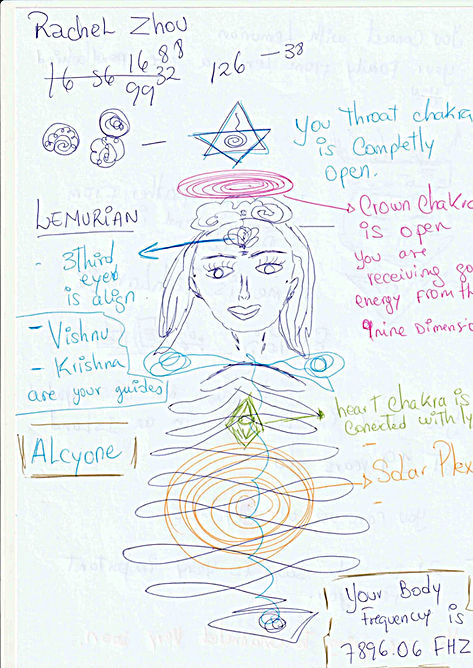 Rachel Zhou
126 - 38
99 32
You throat chakra
is Completly
Open.
Crown Chakra
is open
you are
receiving
energy from
nine Dimensi
LEMURIAN
- 3Third
eyed
is align
- Vishnu
- Krishna
are your guides
ALCYONE
heart chakra is
conected with
Solar Plex
Your Body
Frequency is
7896.06 FHZ